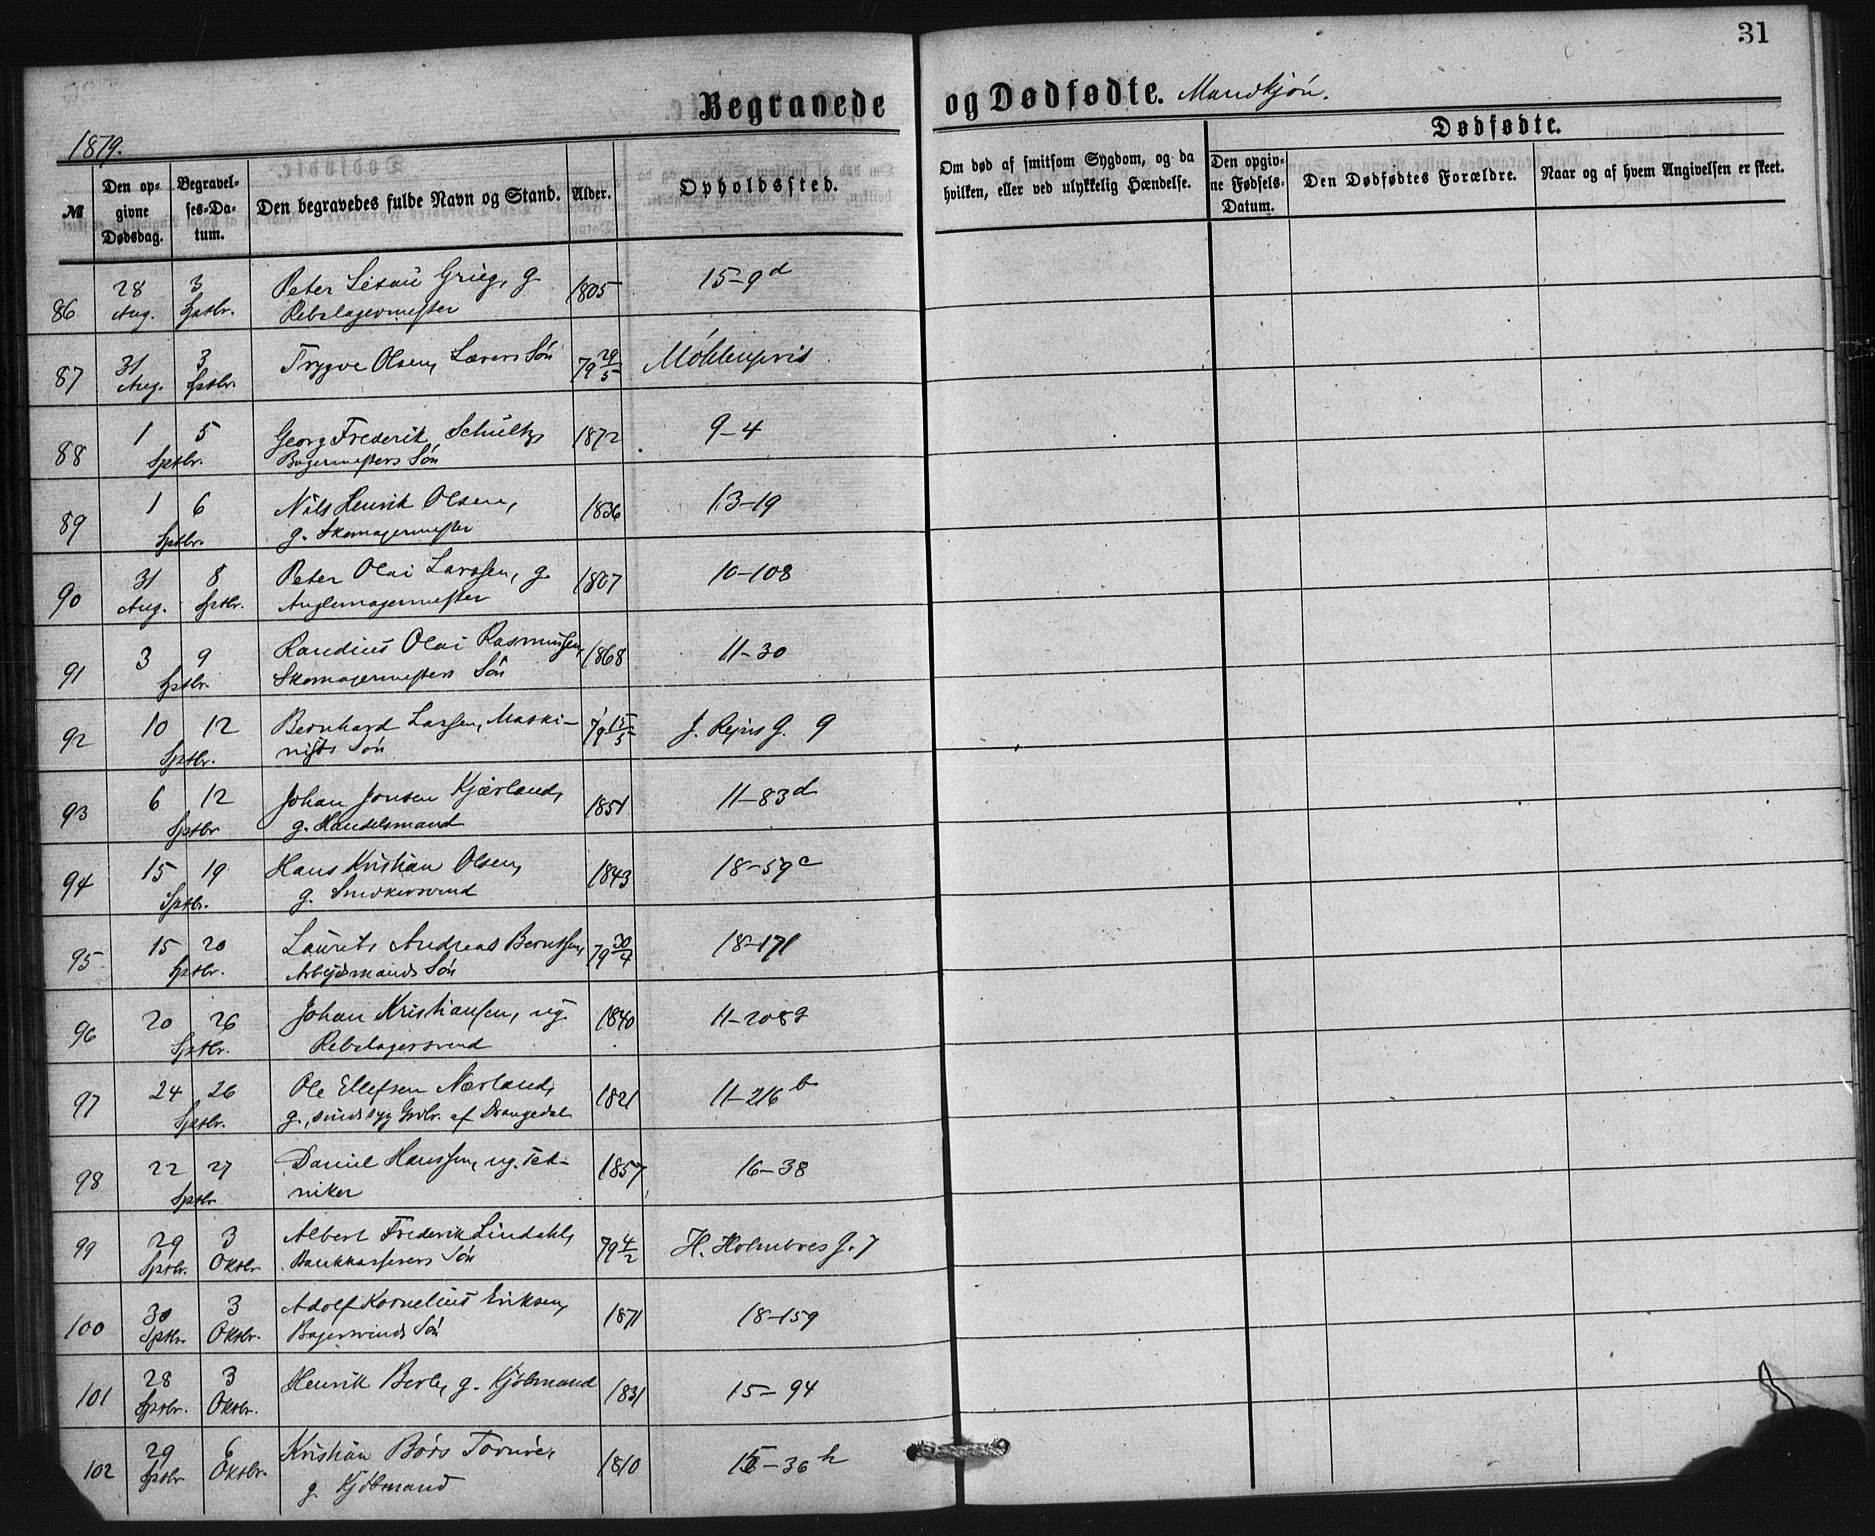 31
Begravede og Dødfødte. Mandkjøn.
1879.
Dødfødte.
№ Den opgivne Dødsdag. Begravelses-Datum. Den begravedes fulde Navn og Stand. Alder. Opholdssted. Om død af smitsom Sygdom, og da hvilken, eller ved ulykkelig Hændelse. Den opgivne Fødsels-Datum. Den Dødfødtes Forældre. Naar og af hvem Angivelsen er skeet.
86 28 Aug. 3 Sptbr. Peter Grieg, g. 1805 15-9d
Rebslagermester
87 31 Aug. 3 Sptbr. Trygve Olsen, Lærers Søn 79 29/5 Møhlenpris
88 1 5 Sptbr. Georg Frederik Schultz, 1872 9-4
Bagermesters Søn
89 1 6 Sptbr. Nils Henrik Olsen, 1836 13-19
g. Skomagermester
90 31 Aug. 8 Sptbr. Peter Olai Larssen, g. 1807 10-108
Anglemagermester
91 3 9 Sptbr. Randius Olai Rasmussen, 1868 11-30
Skomagermesters Søn
92 10 12 Sptbr. Bernhard Larsen, Maski- 79 15/5 J. G. 9
nists Søn
93 6 12 Sptbr. Johan Jonsen Kjærland, 1851 11-83d
g. Handelsmand
94 15 19 Sptbr. Hans Kristian Olsen, 1843 18-59c
g. Snedkersvend
95 15 20 Sptbr. Laurits Andreas Berntsen, 79 30/4 18-171
Arbejdsmands Søn
96 20 26 Sptbr. Johan Kristiansen, ug. 1840 11-208g
Rebslagersvend
97 24 26 Sptbr. Ole Ellefsen Nærland, 1821 11-216b
g., sindssyg Grdbr. af Drangedal
98 22 27 Sptbr. Daniel Hanssen, ug. Tek- 1857 16-38
niker
99 29 Sptbr. 3 Oktbr. Albert Frederik Lindahl, 79 4/2 H. Holmboes G. 7
Bankkasserers Søn
100 30 Sptbr. 3 Oktbr. Adolf Kornelius Eriksen, 1871 18-159
Bagersvends Søn
101 28 Sptbr. 3 Oktbr. Henrik Berle, g. Kjøbmand 1831 15-94
102 29 Sptbr. 6 Oktbr. Kristian Børs Tornøe, 1810 -36h
g. Kjøbmand